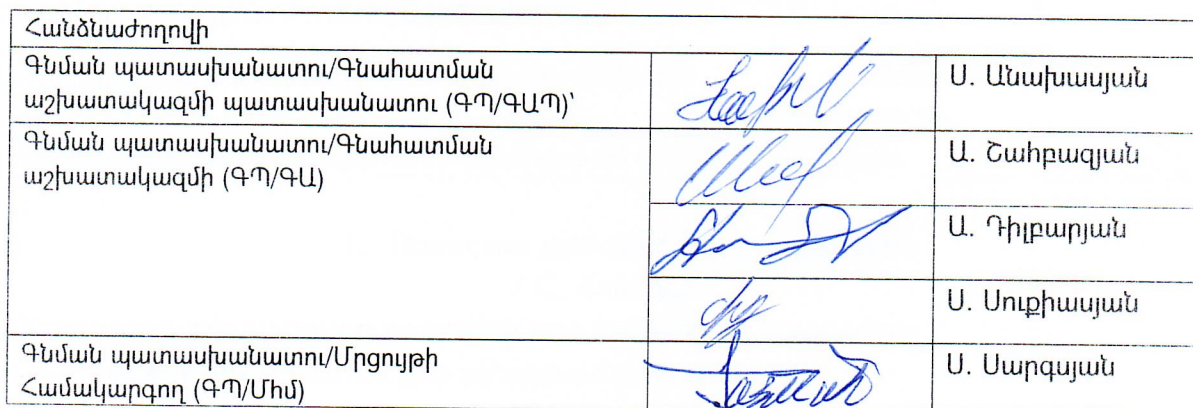 Հանձնաժողովի
Գնման պատասխանատու/Գնահատման
աշխատակազմի պատասխանատու (ԳՊ/ԳԱՊ)՝
Ս. Անախասյան
Գնման պատասխանատու/Գնահատման
աշխատակազմի (ԳՊ/ԳԱ)
Ա. Շահբազյան
Ա. Դիլբարյան
Ս. Սուքիասյան
Գնման պատասխանատու/Մրցույթի
Համակարգող (ԳՊ/Մհմ)
Ս. Սարգսյան